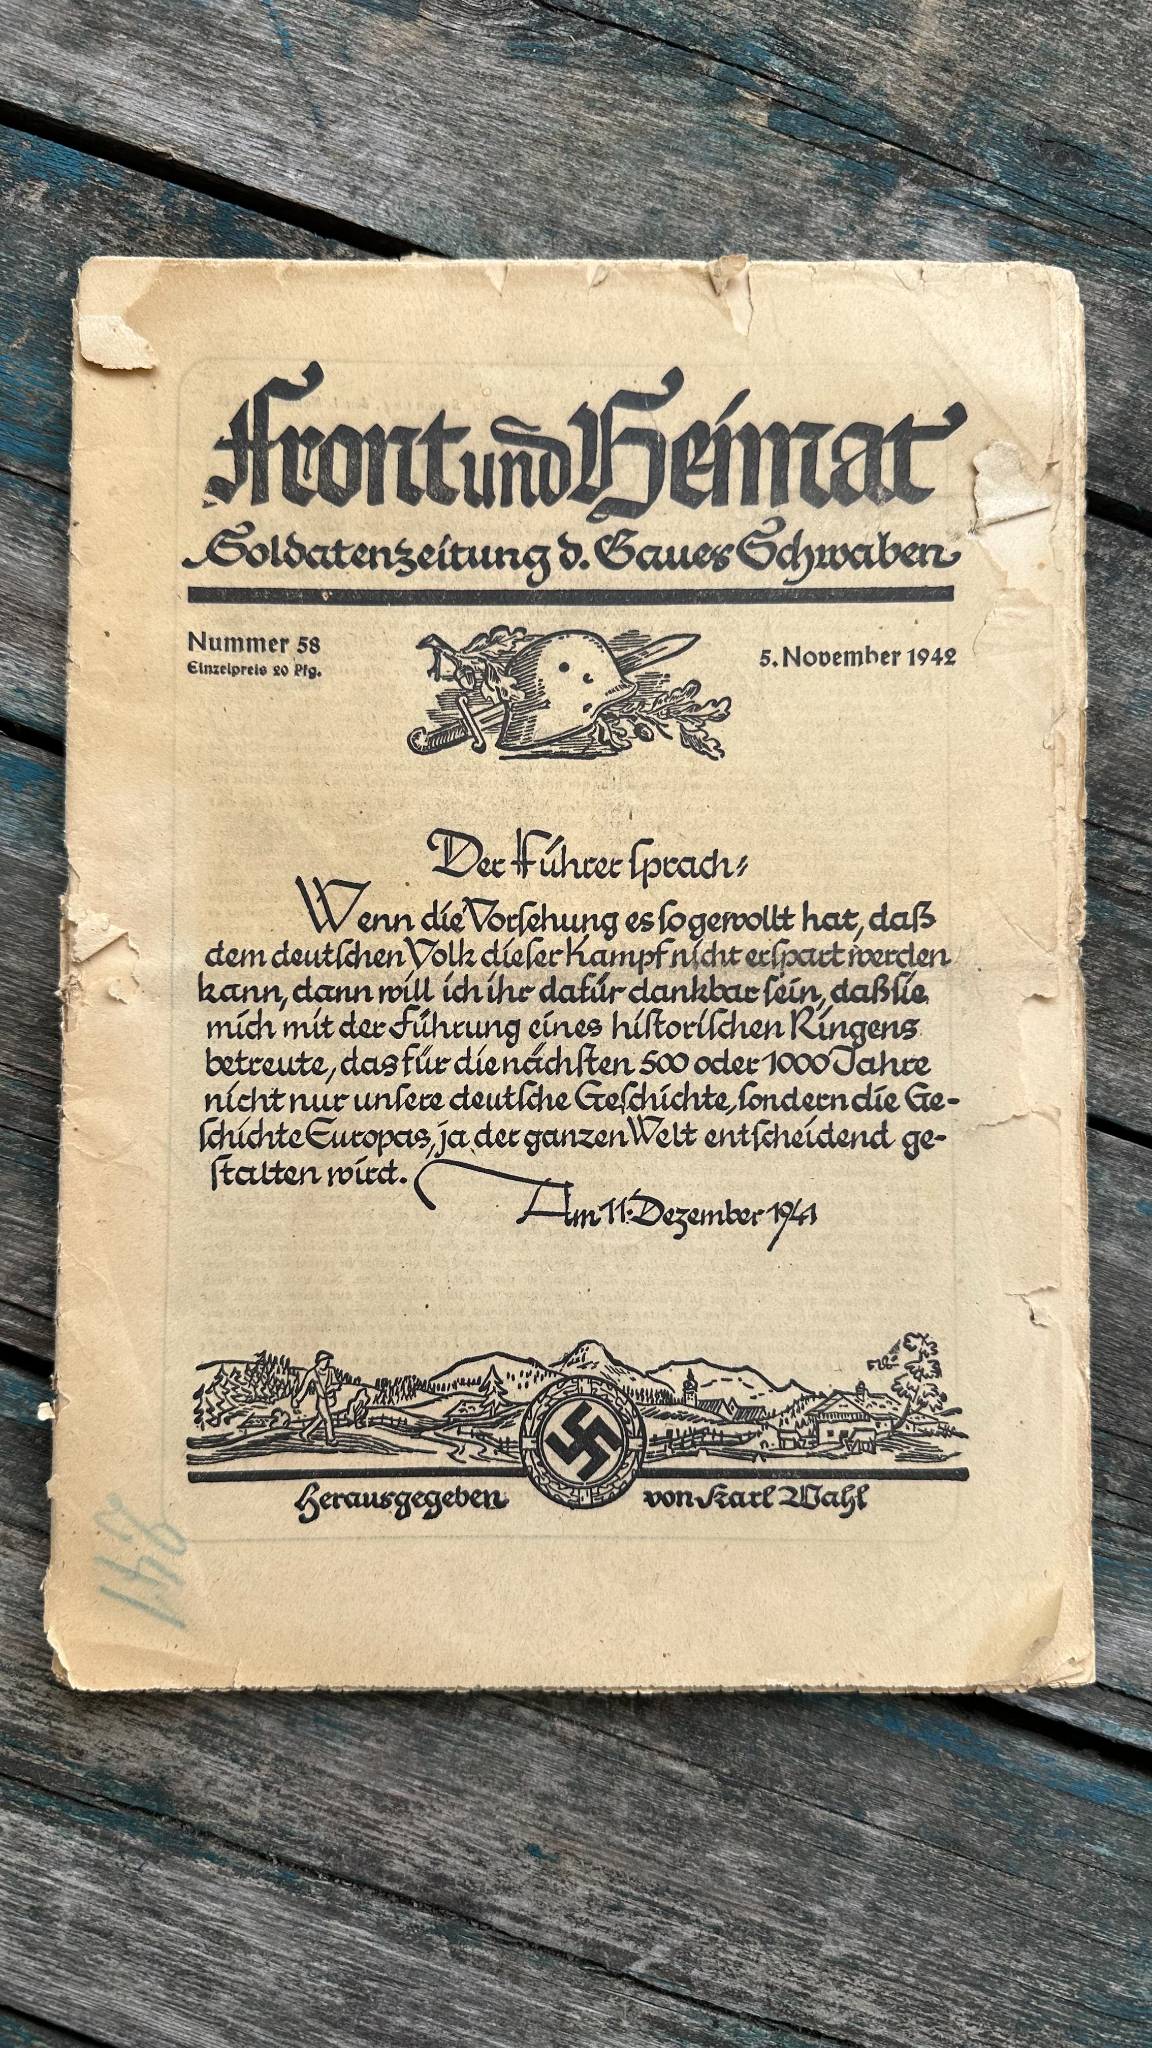 Front und Heimat
Soldatenzeitung d. Gaues Schwaben
Nummer 58
Einzelpreis 20 Pfg.
5. November 1942
Der Führer sprach:
Wenn die Vorsehung es so gewollt hat, daß
dem deutschen Volk dieser Kampf nicht erspart werden
kann, dann will ich ihr dafür dankbar sein, daß sie
mich mit der Führung eines historischen Ringens
betreute, das für die nächsten 500 oder 1000 Jahre
nicht nur unsere deutsche Geschichte, sondern die Ge-
schichte Europas, ja der ganzen Welt entscheidend ge-
stalten wird.
Am 11. Dezember 1941
Herausgegeben von Karl Wahl